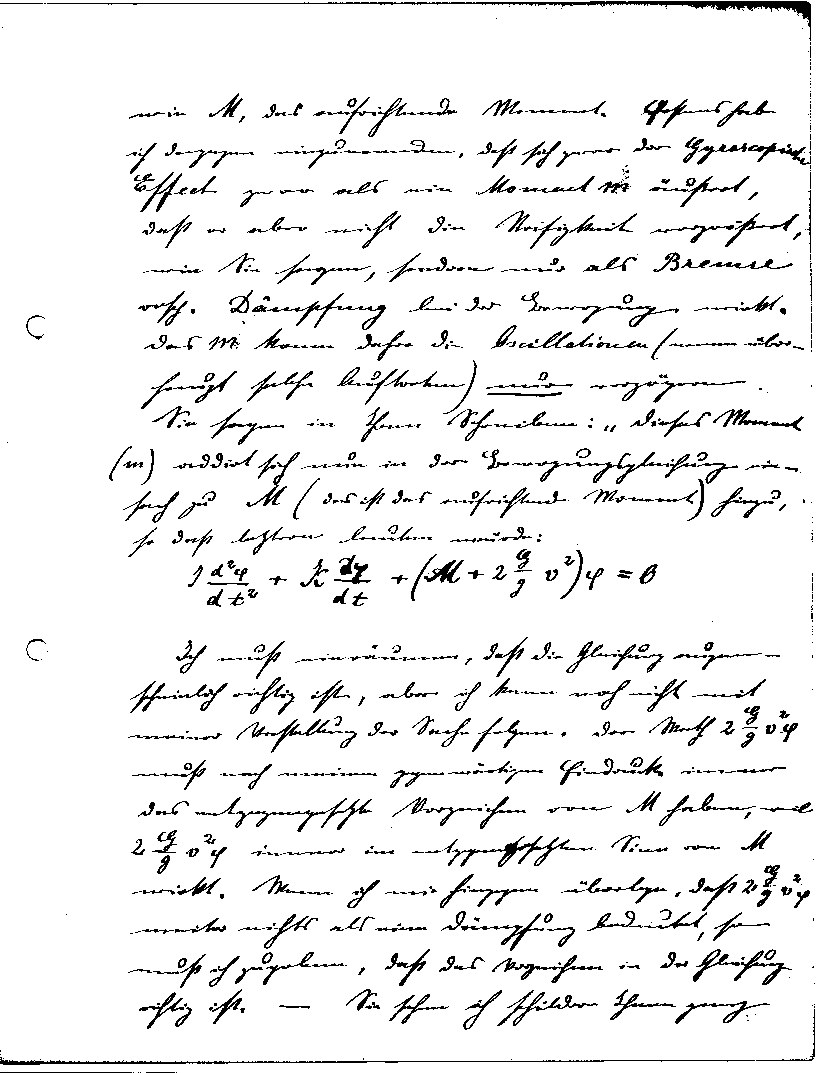 wie M, das aufrichtende Moment. Erstens habe
ich dagegen einzuwenden, daß sich zwar der Gyroscopische
Effect zwar als ein Moment m äußert,
daß er aber nicht die Steifigkeit vergrößert,
wie Sie sagen, sondern nur als Bremse
resp. Dämpfung bei der Bewegung wirkt.
Das m kann daher die Oscillationen (wenn über-
haupt solche auftreten) nur verzögern.
Sie sagen in Ihrem Schreiben: „Dieses Moment
(m) addirt sich nun in der Bewegungsgleichung ein-
fach zu M (das ist das aufrichtende Moment) hinzu,
so daß letztere lauten würde:
J d²φ/dt² + K dφ/dt + (M + 2 G/g v²)φ = 0
Ich muß einräumen, daß die Gleichung augen-
scheinlich richtig ist, aber ich kann noch nicht mit
meiner Vorstellung der Sache folgen. Der Werth 2 G/g v²φ
muß nach meinem gegenwärtigen Eindruck immer
das entgegengesetzte Vorzeichen von M haben, weil
2 G/g v²φ immer im entgegengesetzten Sinne von M
wirkt. Wenn ich mir hingegen überlege, daß 2 G/g v²φ
weiter nichts als eine Dämpfung bedeutet, so
muß ich zugeben, daß das Vorzeichen in der Gleichung
richtig ist. — Sie sehen ich schildere Ihnen ganz